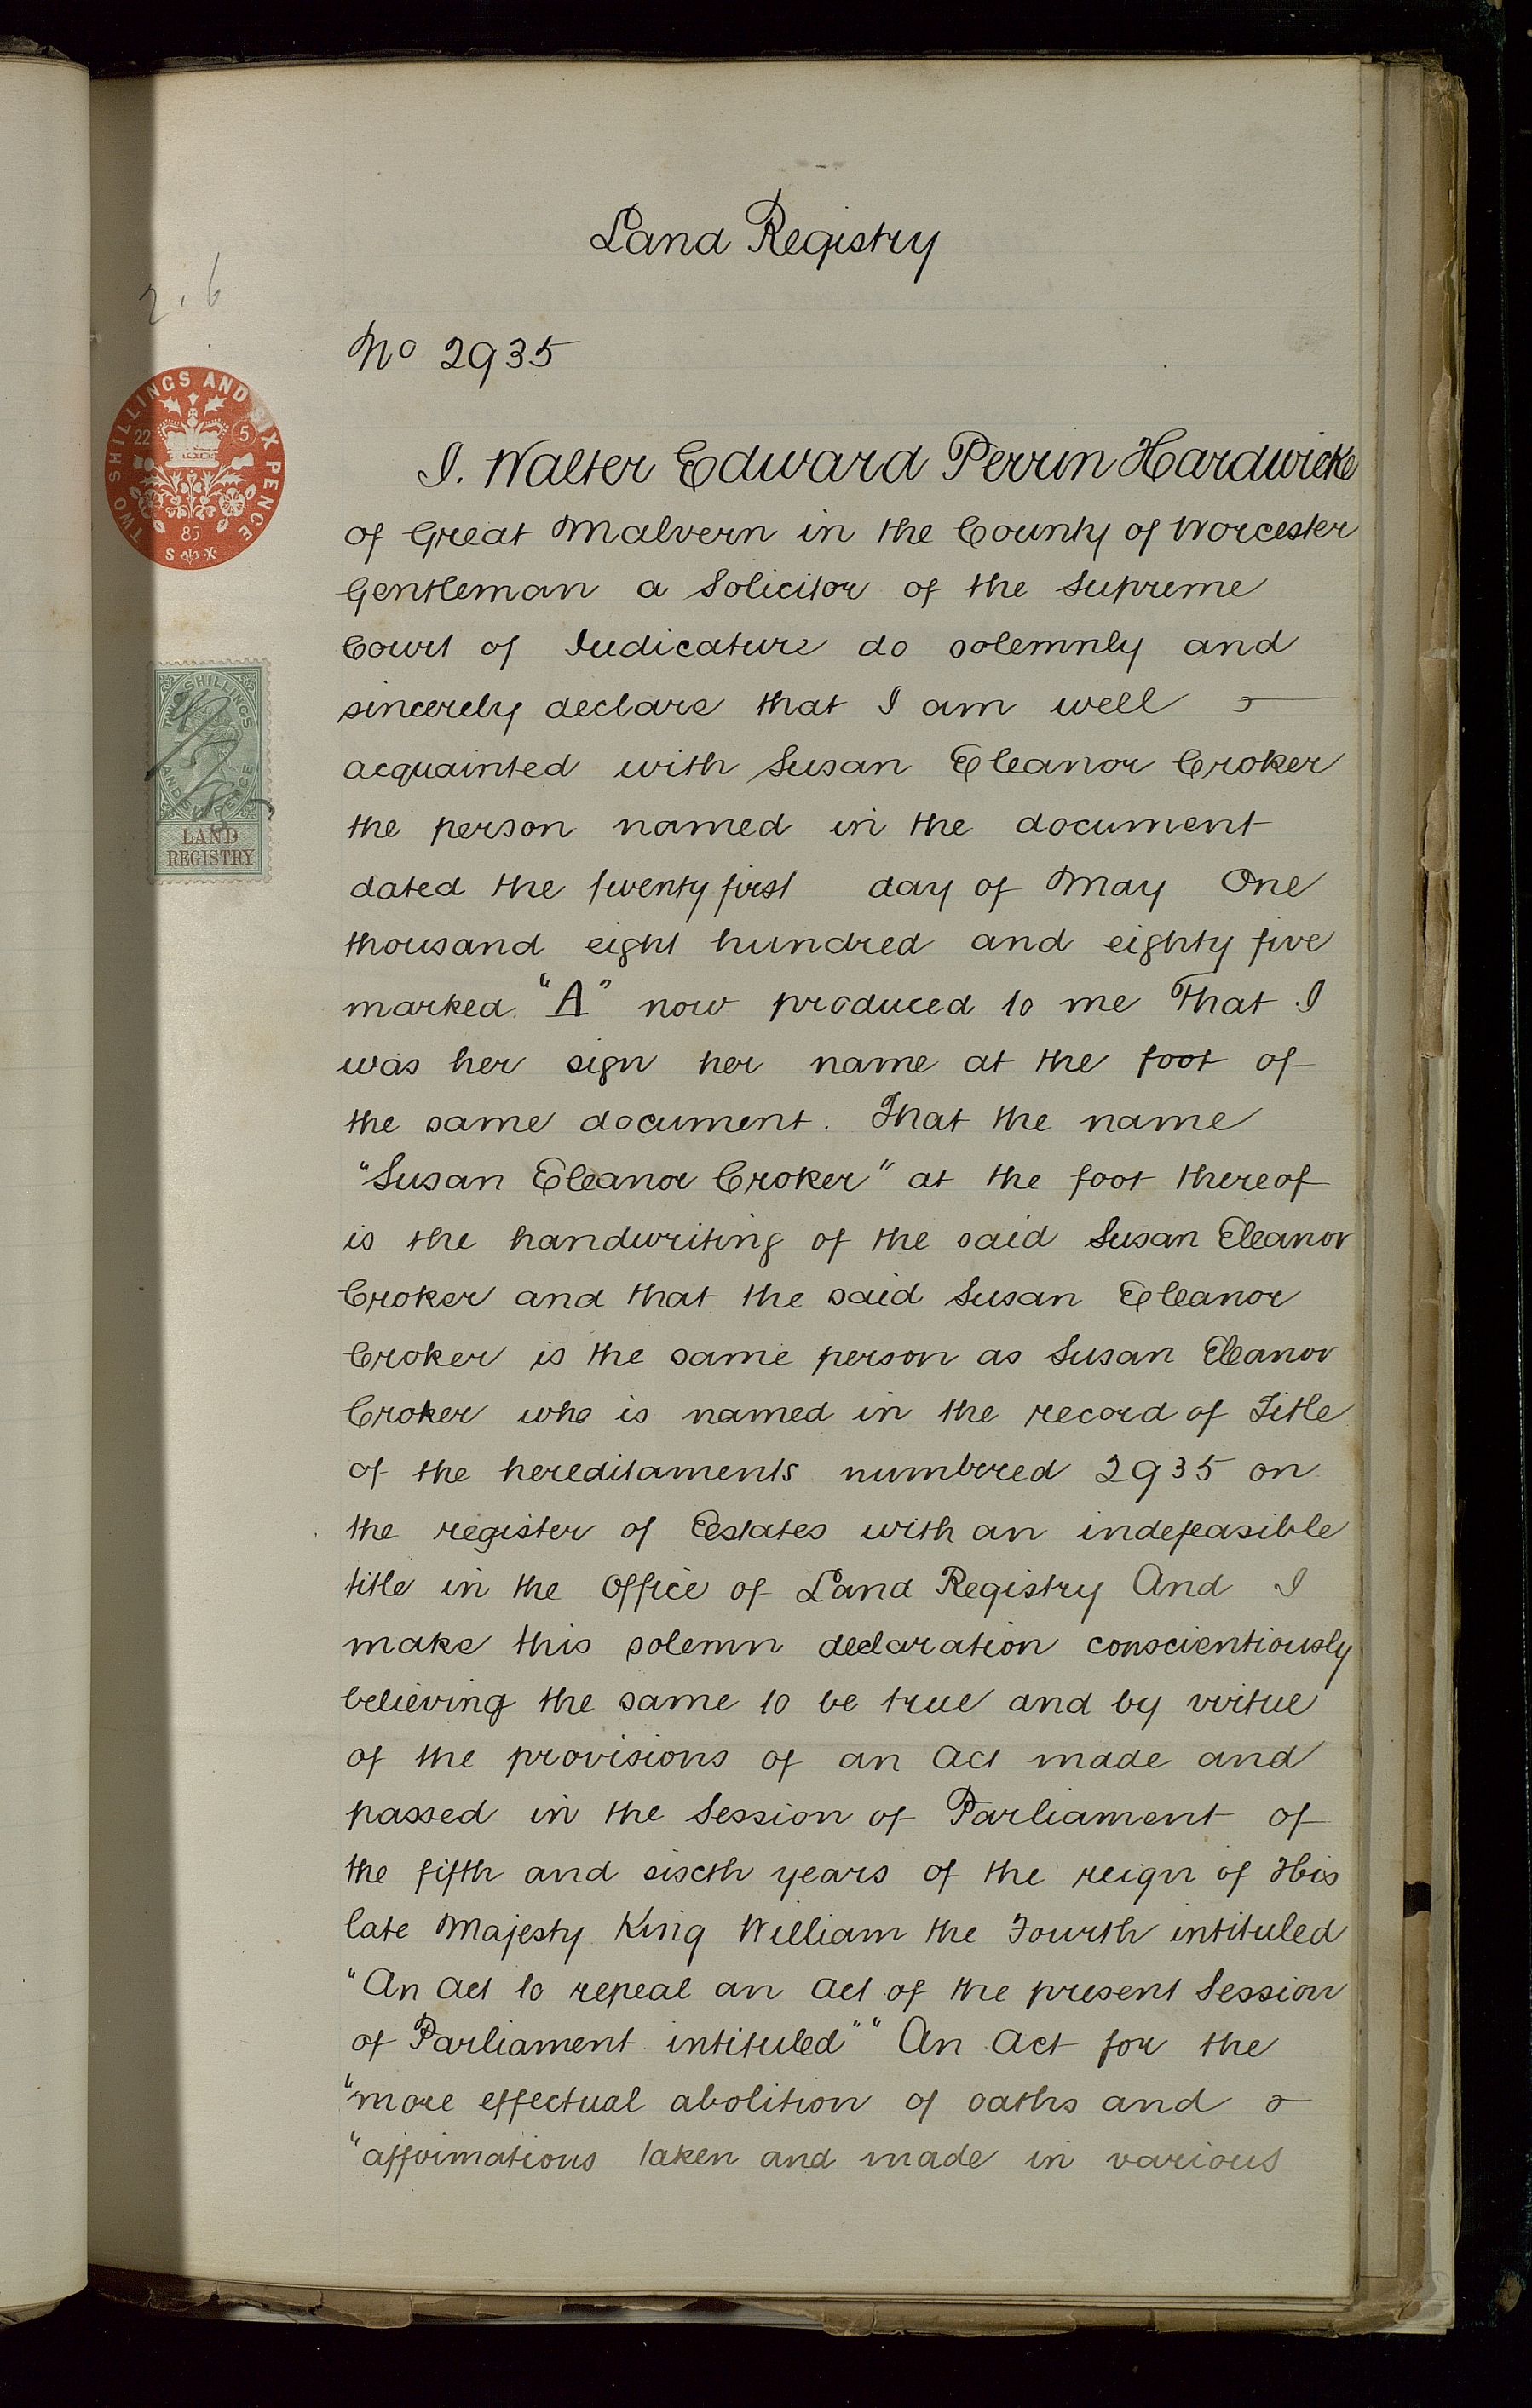 Land Registry
2.6
No 2935
TWO SHILLINGS AND SIX PENCE
22 5
85
S X
I. Walter Edward Perrin Hardwicke
of Great Malvern in the County of Worcester
Gentleman a Solicitor of the Supreme
Court of Judicature do solemnly and
sincerely declare that I am well
acquainted with Susan Eleanor Croker
the person named in the document
dated the twenty first day of May One
thousand eight hundred and eighty five
marked "A" now produced to me That I
was her sign her name at the foot of
the same document. That the name
"Susan Eleanor Croker" at the foot thereof
is the handwriting of the said Susan Eleanor
Croker and that the said Susan Eleanor
Croker is the same person as Susan Eleanor
Croker who is named in the record of Title
of the hereditaments numbered 2935 on
the register of Estates with an indefeasible
title in the Office of Land Registry And I
make this solemn declaration conscientiously
believing the same to be true and by virtue
of the provisions of an Act made and
passed in the Session of Parliament of
the fifth and sixth years of the reign of His
late Majesty King William the Fourth intituled
"An Act to repeal an Act of the present Session
of Parliament intituled" "An Act for the
"more effectual abolition of oaths and
"affirmations taken and made in various
TWO SHILLINGS
AND SIX PENCE
LAND
REGISTRY